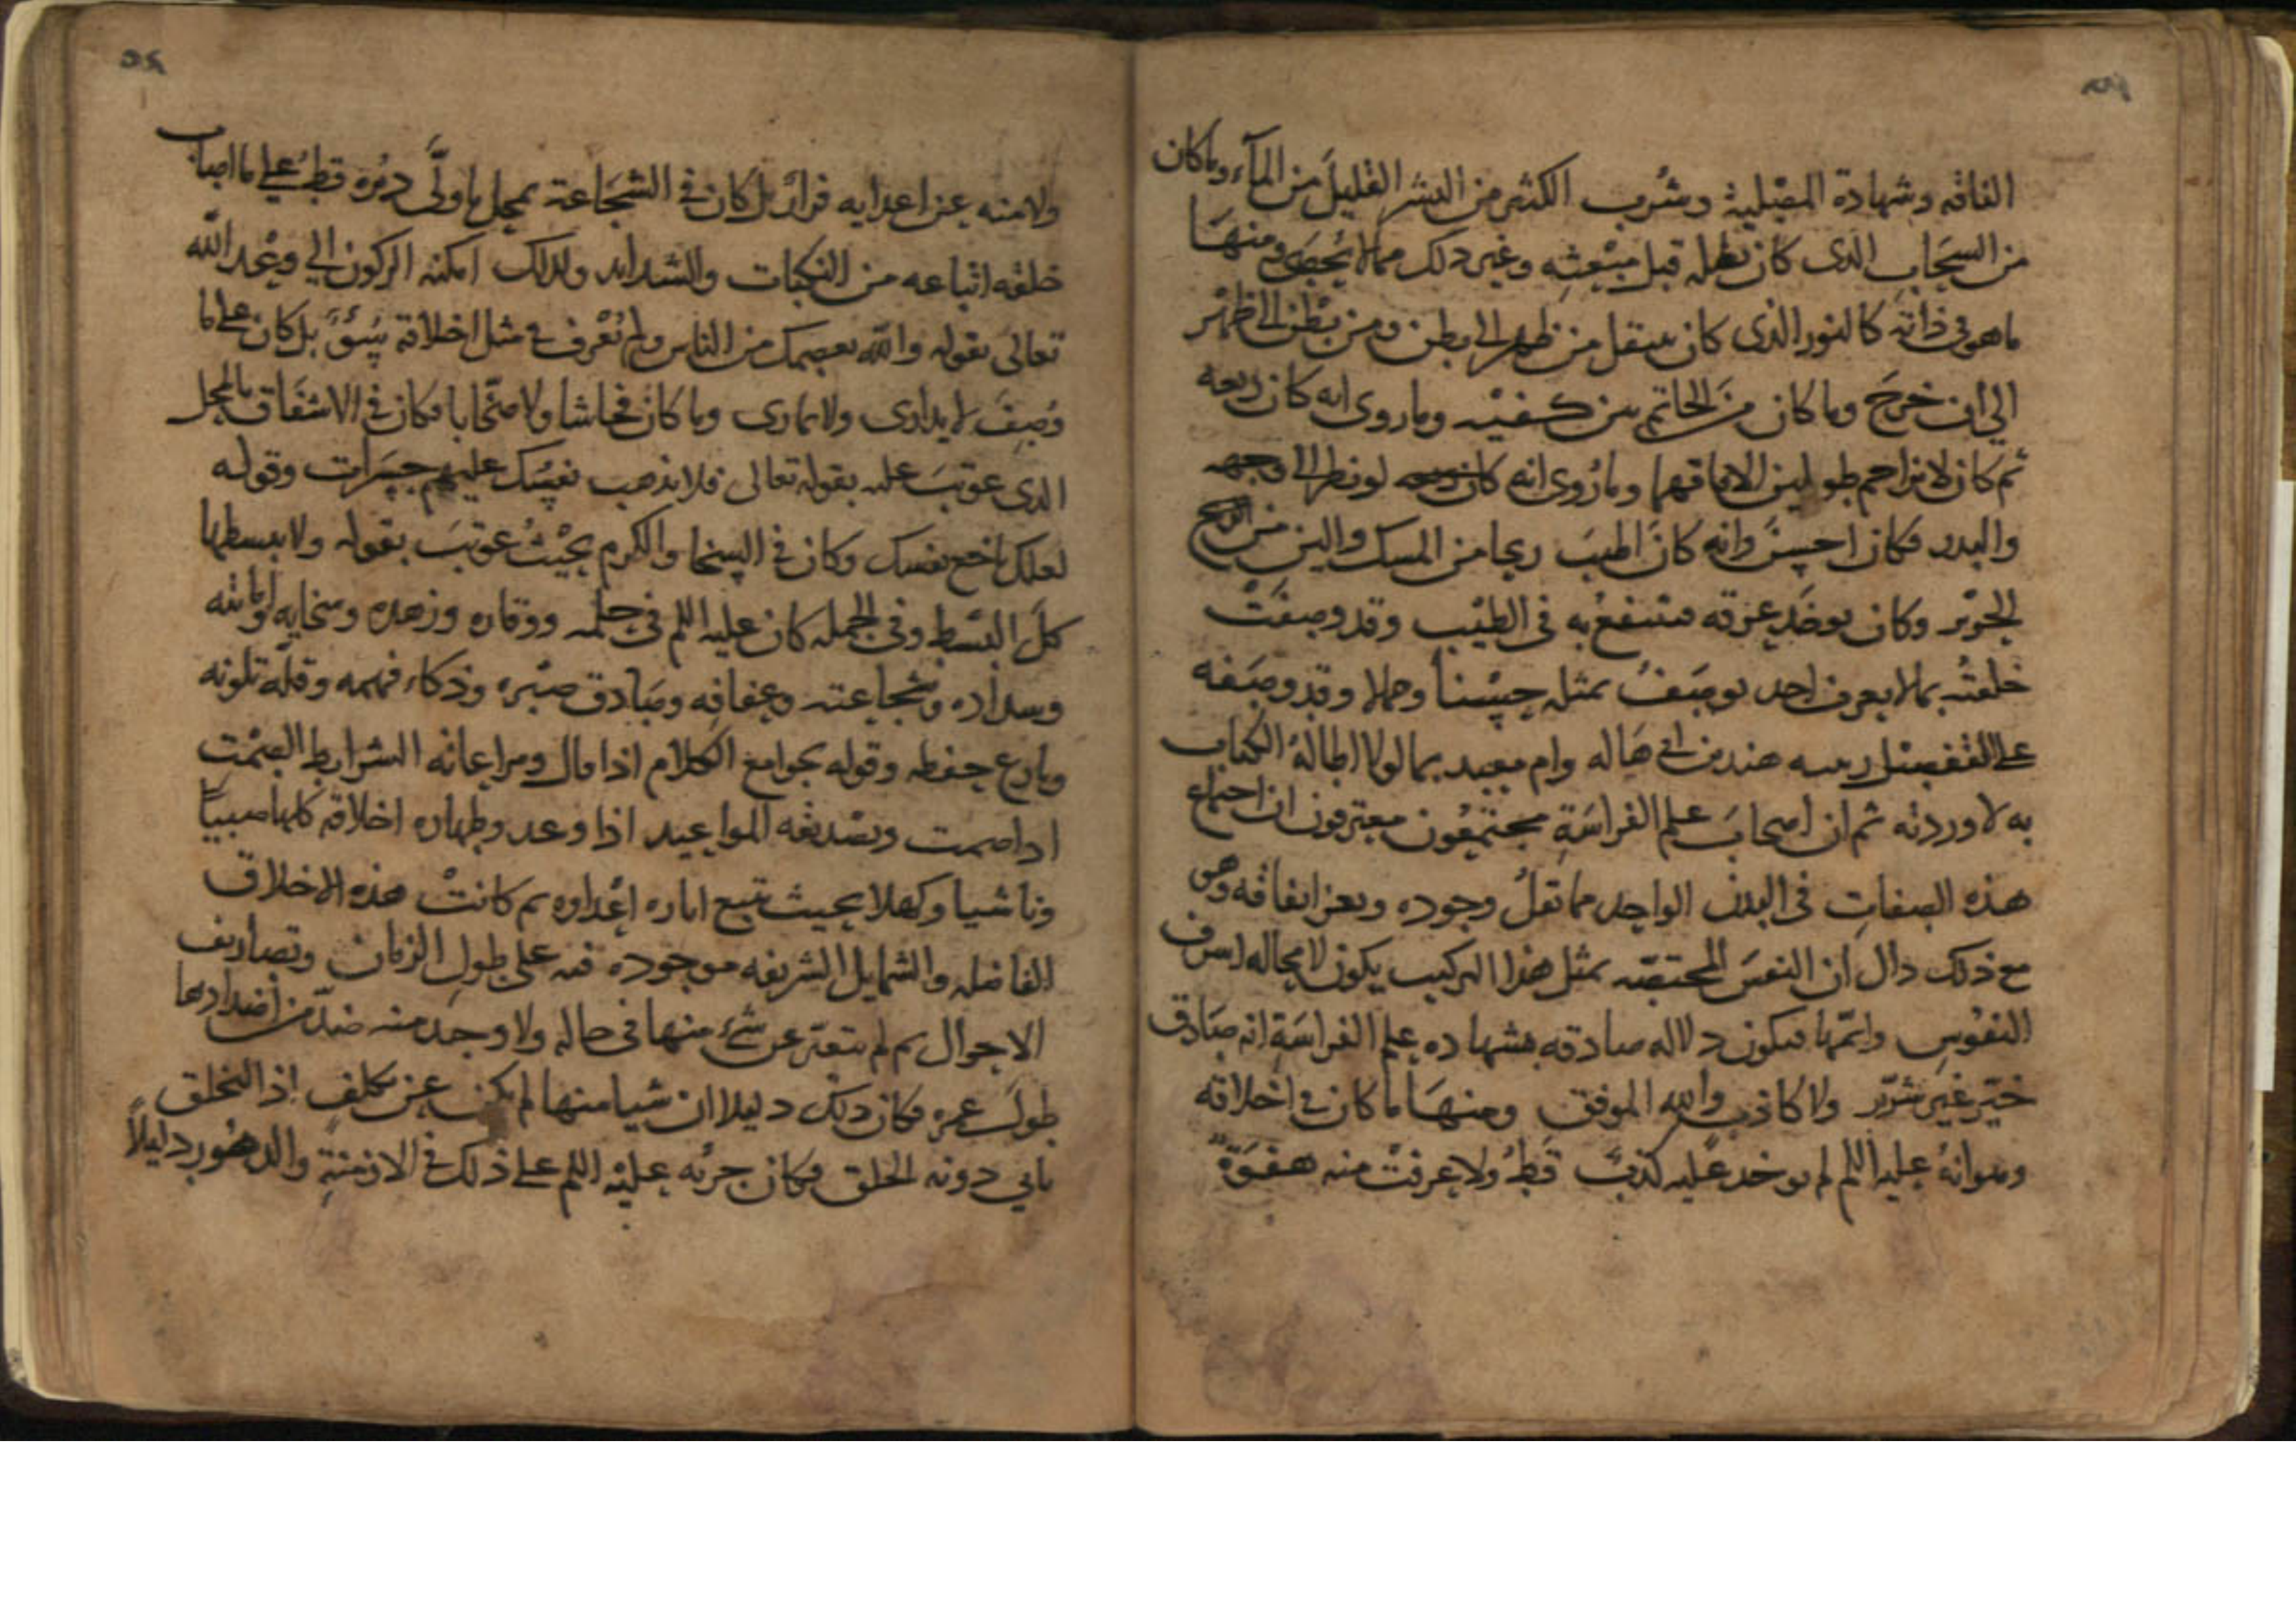 الناقه وشهادة المصْلية وشُرب الكثير من البشر القليلَ من المآء وما كان
من السحاب الذى كان يظله قبل مبْعثه وغير ذلك مما لا يُحصَى ومنهَا
ما هو فى ذاته كالنور الذى كان ينتقل من ظهر الى بطن ومن بطْن الى ظهْر
الى ان خرجَ وما كان من الخاتم بين كتفيْه وما روى انه كان ربعه
ثم كان لا يزاحم طويلين الا فاقهما وما رُوى انه كان لو نظر الى وجهه
والبدر فكان احسنَ وانه كانَ اطيبَ ريحا من المسك والين من
الحرير وكان يوخَذ عرقه فينتفعُ به فى الطيْب وقد وصفَتْ
خلقتُه بما لا يعرف احد يوصَفُ بمثله حسْناً وجمالا وقد وصَفه
على التفصيْل هند بن ابى هَاله وام معبد بما لولا اطالةُ الكتاب
به لاوردته ثم ان اصحابَ علم الفراسَةِ مجتمعُون معترفون ان اجتماع
هذه الصفاتِ فى البدن الواحد مما تقلُ وجوده ويعز اتفاقه وهى
مع ذلك دال ان النفسَ المختصّه بمثل هذا التركيب يكون لا محاله اشرف
النفوسِ واتمّها فيكون دلاله صادقه بشهاده علم الفراسَةِ انه صَادق
خيّر غير شرّير ولا كاذب والله الموفق ومنهَا ما كان فى اخلاقه
وهو انهُ عليه اللم لم يوخد عليه كذبٌ قطُ ولا عرفتْ منه هفوَةٌ
٥٤
ولا منه عن اعدايه فرارٌ بل كان فى الشجَاعة بمحل ما ولَّى دبُره قطُ على ما اصاب
خلقه اتباعه من النكبات والشدايد ولذلك امكنه الركون الى وعْد الله
تعالى بقوله والله يعصمك من الناس ولم تُعْرف فى مثل اخلاقه سُوْءٌ بل كان على ما
وُصِفَ لا يدارى ولا يمارى وما كان فحاشا ولا صخّابا فكان فى الاشفَاق بالمحل
الذى عوتبَ عليه بقوله تعالى فلا تذهب نفسُك عليهم حسَرات وقوله
لعلك باخع نفسك وكان فى السخا والكرم بحيْثُ عوتبَ بقوله ولا تبسطها
كلَ البسْط وفى الجمله كان عليه اللم فى حلمه ووقاره وزهده وسخايه وامانته
وسداده وشجاعته وعفافه وصَادق صبْره وذكاء فهمه وقلّه تلونه
وبارع حفظه وقوله بجوامع الكلام اذا قال ومراعاته الشرايط الصمْت
اذا صمت وتصْديقه المواعيد اذا وعد وطهاره اخلاقه كلها صبيًا
وناشيا وكهلا بحيث تتبع اثاره اعْداوه ثم كانتْ هذه الاخلاق
الفاضله والشمايل الشريفه موجوده فيه على طول الزمان وتصاريف
الاحوال ثم لم يتعرّ عن شىْء منها فى حاله ولا وجد منه ضدّ من اضدادها
طولَ عمره فكان ذلك دليلا ان شيا منها لم يكن عن تكلفٍ اذ التخلق
ياتى دونه الخلق فكان جرْيه عليْه اللم على ذلك فى الازمنةِ والدهُور دليلاً